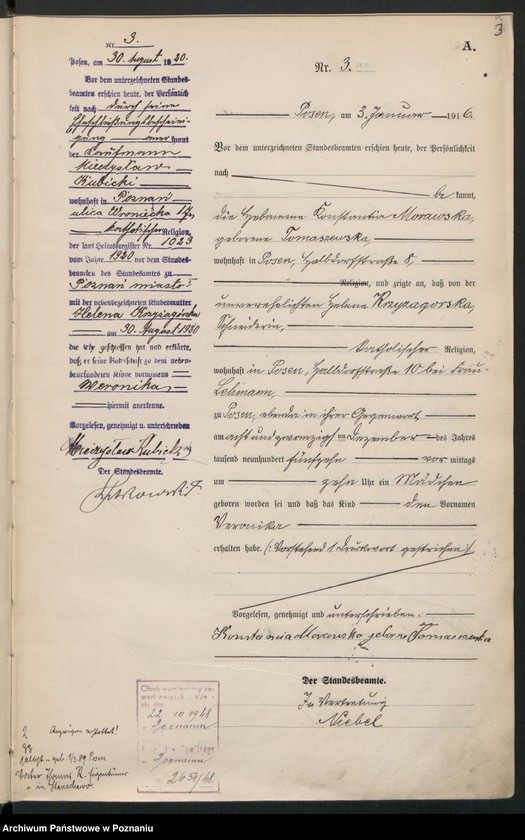 3
A.
Nr. 3.
Posen, am 3. Januar 1916.
Vor dem unterzeichneten Standesbeamten erschien heute, der Persönlichkeit
nach
be kannt,
die Hebamme Konstantia Morawska,
geborene Tomaszewska,
wohnhaft in Posen, Halbdorfstraße 8,
Religion, und zeigte an, daß von der
unverehelichten Helena Krzyzagorska,
Schneiderin,
katholischer Religion,
wohnhaft in Posen, Halbdorfstraße 10 bei Frau
Lehmann,
zu Posen, ebenda in ihrer Gegenwart
am acht und zwanzigsten Dezember des Jahres
tausend neunhundert fünfzehn vor mittags
um zehn Uhr ein Mädchen
geboren worden sei und daß das Kind den Vornamen
Veronika
erhalten habe. (: Vorstehend 1 Druckwort gestrichen :)
Vorgelesen, genehmigt und unterschrieben.
Konstancia Morawska geborne Tomaszewska
Der Standesbeamte.
In Vertretung
Niebel
Nr. 3.
Posen, am 30. August 1920.
Vor dem unterzeichneten Standes-
beamten erschien heute, der Persönlich
keit nach durch seine
Eheschließungsbescheini-
gung anerkannt
der Kaufmann
Mieczysław
Kubicki
wohnhaft in Poznań
ulica Wroniecka
katholischer Religion,
der laut Heiratsregister Nr. 1023
vom Jahre 1920 vor dem Standes-
beamten des Standesamtes zu
Poznań miasto
mit der nebenbezeichneten Kindesmutter
Helena Krzyżagórska
am 30. August 1920
die Ehe geschlossen hat und erklärte,
daß er seine Vaterschaft zu dem neben-
beurkundeten Kinde vornamens
Weronika,
hiermit anerkenne.
Vorgelesen, genehmigt u. unterschrieben
Mieczysław Kubicki
Der Standesbeamte.
22 10 1948
Poznaniu
Poznaniu
2659/48.
Archiwum Państwowe w Poznaniu